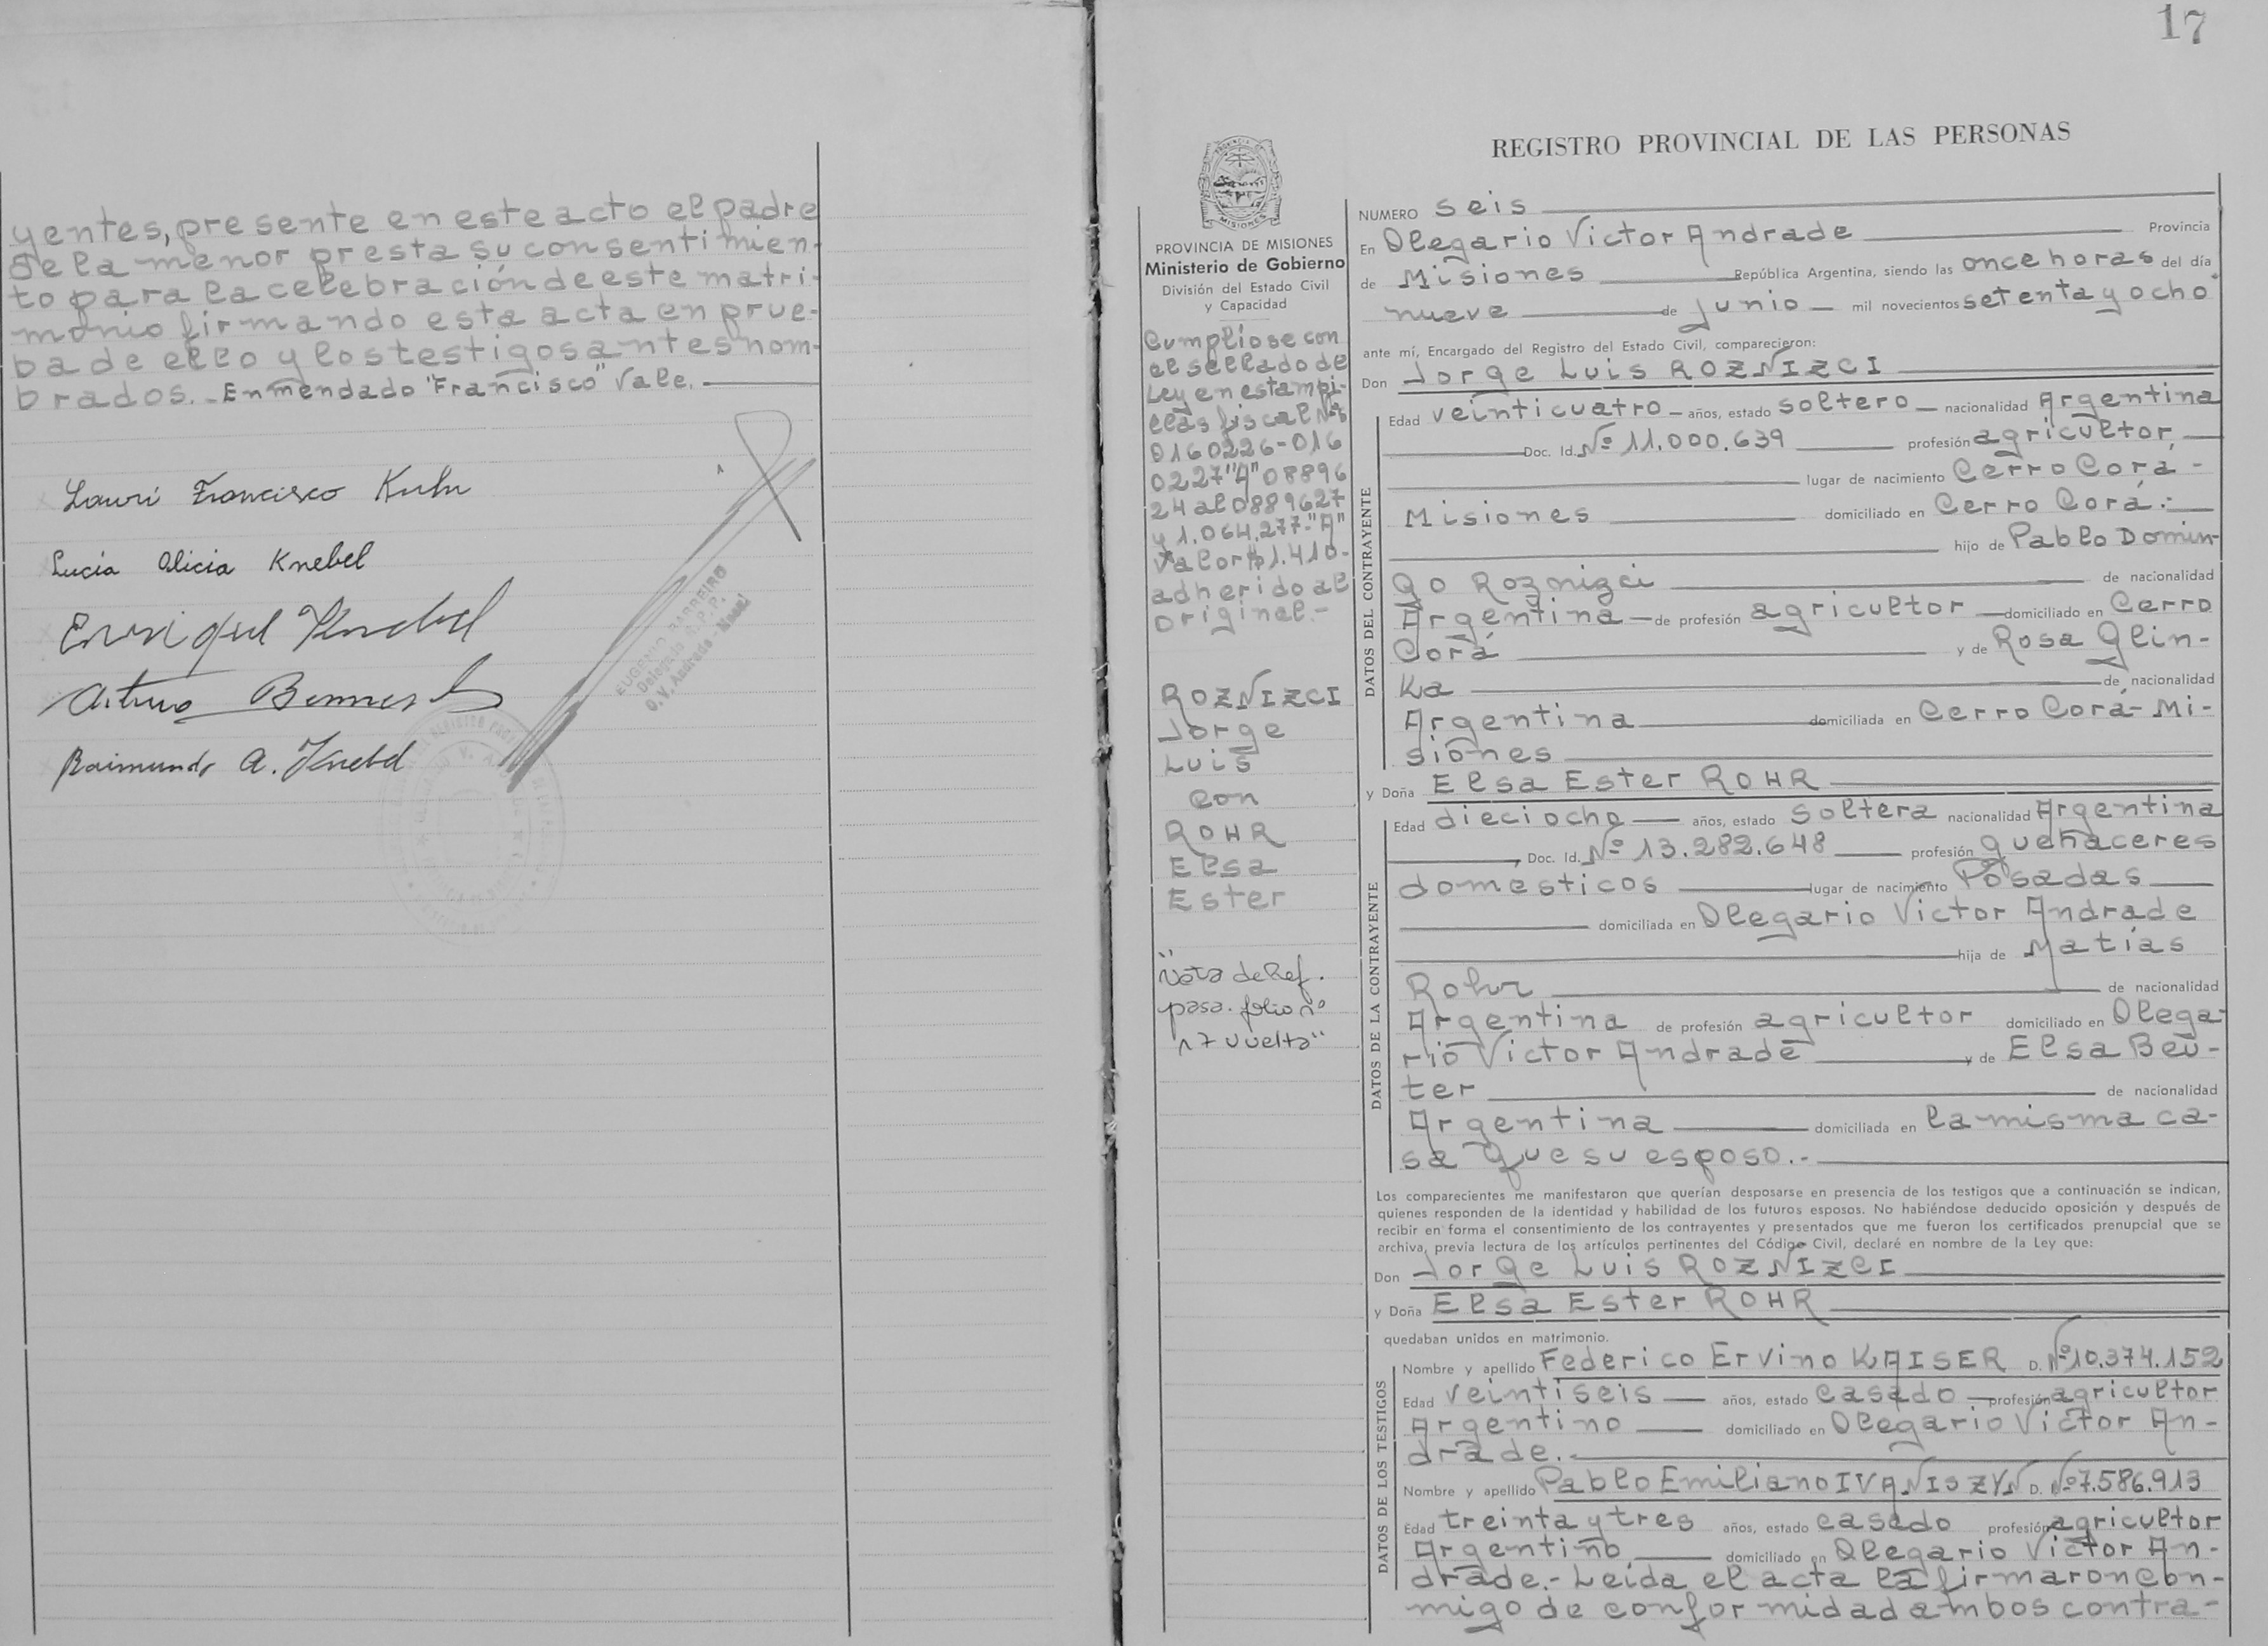 yentes, presente en este acto el padre
de la menor presta su consentimien-
to para la celebración de este matri-
monio firmando esta acta en prue-
ba de ello y los testigos antes nom-
brados. - Enmendado "Francisco" Vale.
Lauri Francisco Kuhn
Lucia Alicia Knebel
Enrique Knebel
Arturo
Raimundo A. Knebel
EUGENIO BARREIRO
Delegado R.P.P.
O. V. Andrade - Mnes.
17
REGISTRO PROVINCIAL DE LAS PERSONAS
PROVINCIA DE MISIONES
Ministerio de Gobierno
División del Estado Civil
y Capacidad
Cumplióse con
el sellado de
Ley en estampi-
llas fiscal Nºs
0160226-016
0227"A" 08896
24 al 0889627
y 1.064.277-"A"
Valor $ 1.410-
adherido al
original.-
ROZÑIZCI
Jorge
Luis
con
ROHR
Elsa
Ester
"Nota de Ref.
pasa. folio nº
17 vuelta"
NUMERO Seis
En Olegario Victor Andrade Provincia
de Misiones República Argentina, siendo las once horas del día
nueve de Junio mil novecientos setenta y ocho
ante mí, Encargado del Registro del Estado Civil, comparecieron:
Don Jorge Luis ROZÑIZCI
DATOS DEL CONTRAYENTE
Edad veinticuatro años, estado soltero nacionalidad Argentina
Doc. Id. Nº 11.000.639 profesión agricultor,
lugar de nacimiento Cerro Corá -
Misiones domiciliado en Cerro Corá.-
hijo de Pablo Domin-
go Rozñizci de nacionalidad
Argentina de profesión agricultor domiciliado en Cerro
Corá y de Rosa Glin-
ka de nacionalidad
Argentina domiciliada en Cerro Corá- Mi-
siones
y Doña Elsa Ester ROHR
DATOS DE LA CONTRAYENTE
Edad dieciocho años, estado soltera nacionalidad Argentina
, Doc. Id. Nº 13.282.648 profesión quehaceres
domesticos lugar de nacimiento Posadas
domiciliada en Olegario Victor Andrade
hija de Matías
Rohr de nacionalidad
Argentina de profesión agricultor domiciliado en Olega-
rio Victor Andrade y de Elsa Beu-
ter de nacionalidad
Argentina domiciliada en la misma ca-
sa que su esposo.-
Los comparecientes me manifestaron que querían desposarse en presencia de los testigos que a continuación se indican,
quienes responden de la identidad y habilidad de los futuros esposos. No habiéndose deducido oposición y después de
recibir en forma el consentimiento de los contrayentes y presentados que me fueron los certificados prenupcial que se
archiva, previa lectura de los artículos pertinentes del Código Civil, declaré en nombre de la Ley que:
Don Jorge Luis ROZÑIZCI
y Doña Elsa Ester ROHR
quedaban unidos en matrimonio.
DATOS DE LOS TESTIGOS
Nombre y apellido Federico Ervino KAISER D. Nº 10.374.152
Edad veintiseis años, estado casado profesión agricultor
Argentino domiciliado en Olegario Victor An-
drade.-
Nombre y apellido Pablo Emiliano IVANISZYN D. Nº 7.586.913
Edad treinta y tres años, estado casado profesión agricultor
Argentino domiciliado en Olegario Victor An-
drade.- Leída el acta la firmaron con-
migo de conformidad ambos contra-